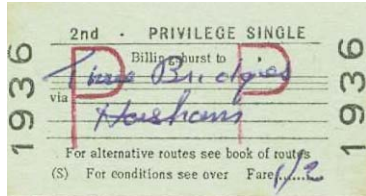 2nd - PRIVILEGE SINGLE
Billingshurst to
Three Bridges
via
Horsham
P P
For alternative routes see book of routes
(S) For conditions see over Fare 1/2
1936
1936